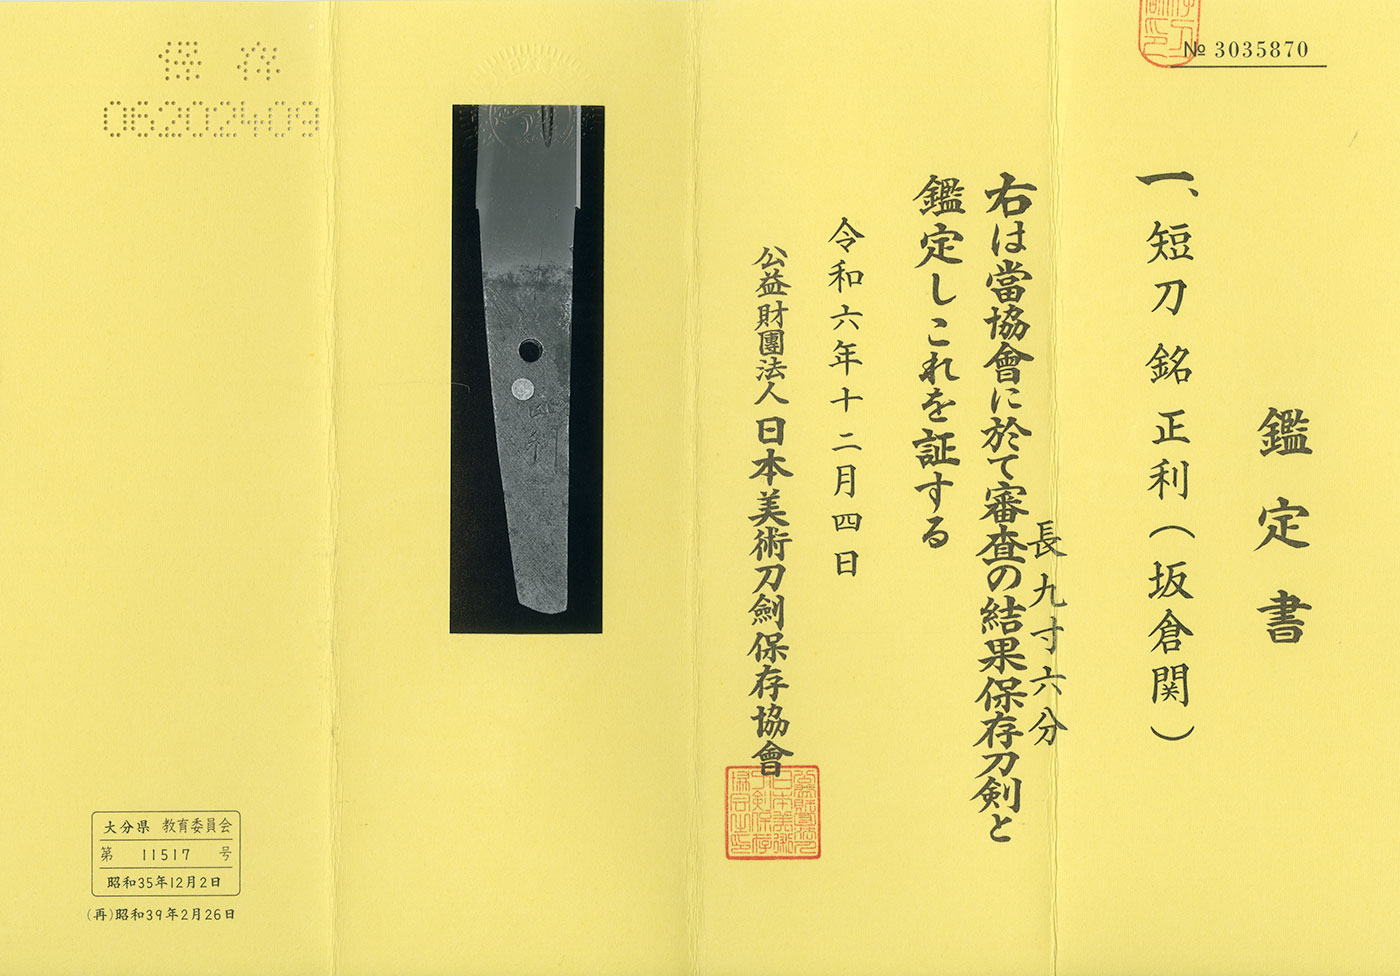 № 3035870
鑑定書
一、短刀 銘 正利（坂倉関）
長九寸六分
右は當協會に於て審査の結果保存刀剣と
鑑定しこれを証する
令和六年十二月四日
公益財團法人 日本美術刀劍保存協會
正利
保存
06202409
大分県 教育委員会
第 11517 号
昭和35年12月2日
(再)昭和39年2月26日